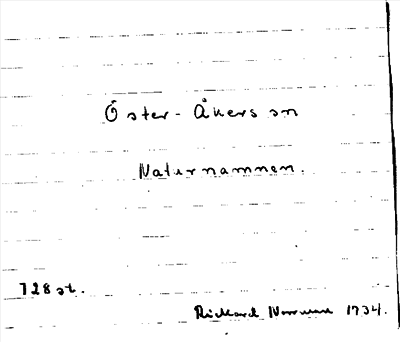 Öster-Åkers sn
Naturnamnen.
728 st.
Rickard 1934.